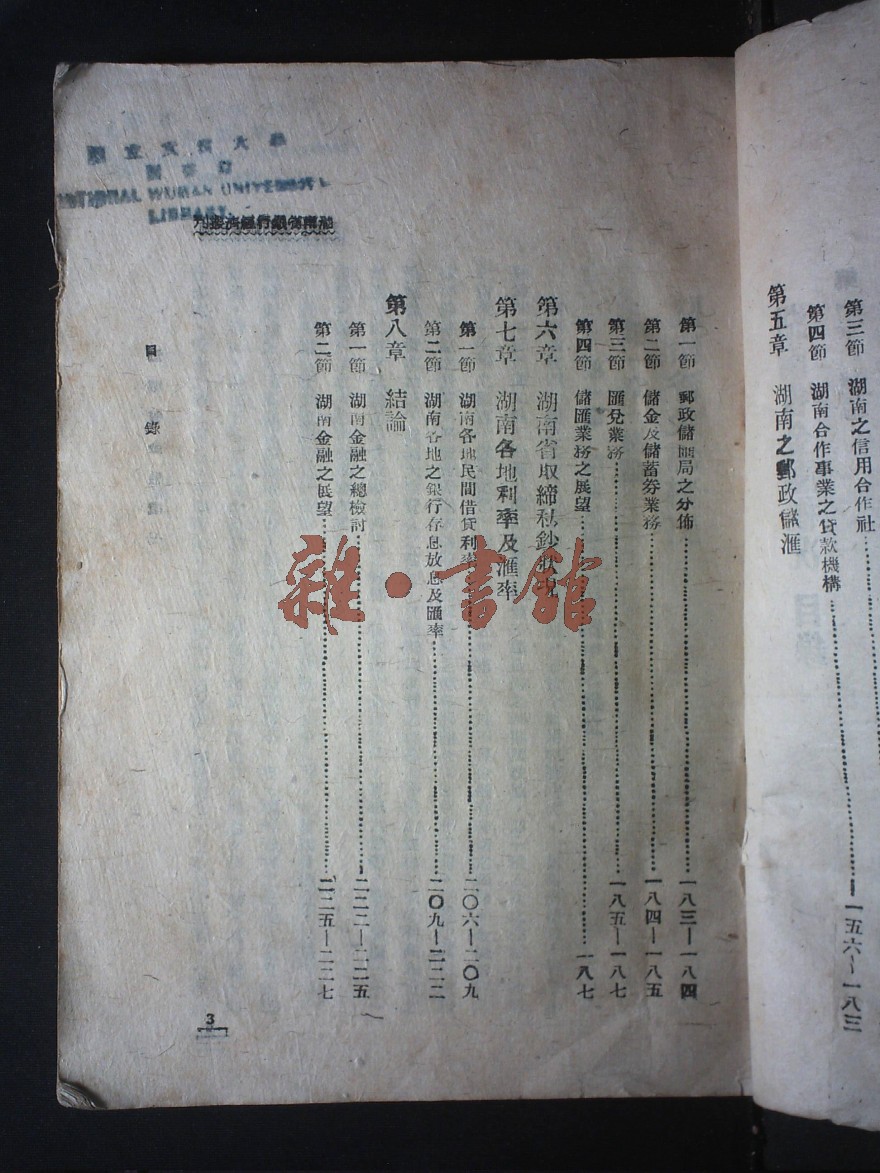 第三節 湖南之信用合作社
第四節 湖南合作事業之貸款機構……一五六—一八三
第五章 湖南之郵政儲滙
第一節 郵政儲匯局之分佈……一八三—一八四
第二節 儲金及儲蓄券業務……一八四—一八五
第三節 匯兌業務……一八五—一八七
第四節 儲匯業務之展望……一八七
第六章 湖南省取締私鈔狀況
第七章 湖南各地利率及滙率
第一節 湖南各地民間借貸利率……二〇六—二〇九
第二節 湖南各地之銀行存息放息及匯率……二〇九—二二二
第八章 結論
第一節 湖南金融之總檢討……二二二—二二五
第二節 湖南金融之展望……二二五—二二七
湖南省銀行經濟叢刊
目錄
3
國立武漢大學
圖書館
NATIONAL WUHAN UNIVERSITY
LIBRARY
雜·書館